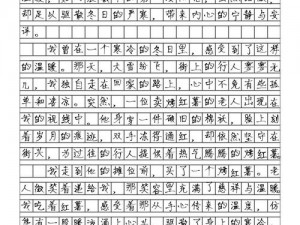 却足以驱散冬日的严寒，带来内心的宁静与安
详。
我曾在一个寒冷的冬日里，感受到了这样
的温暖。那天，大雪纷飞，街上的行人寥寥无
几。我独自走在回家的路上，心中不免有些孤
单和凄凉。突然，一位卖烤红薯的老人出现在
我的视线中。他身穿一件破旧的棉袄，脸上刻
着岁月的痕迹，双手冻得通红，却依然坚守在
街头，为过往的行人提供着热气腾腾的烤红薯。
我走到他的摊位前，买了一个烤红薯。老
人微笑着递给我，那笑容里充满了慈祥与温暖。
我吃着红薯，感受着从手心传来的温度，仿